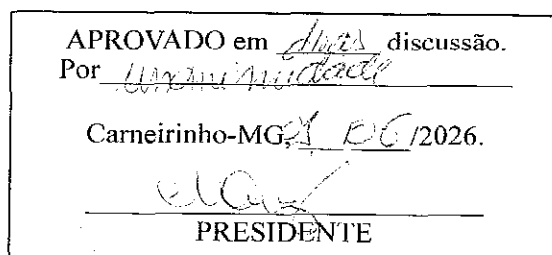 APROVADO em duas discussão.
Por unanimidade
Carneirinho-MG, 01 / 06 /2026.
PRESIDENTE